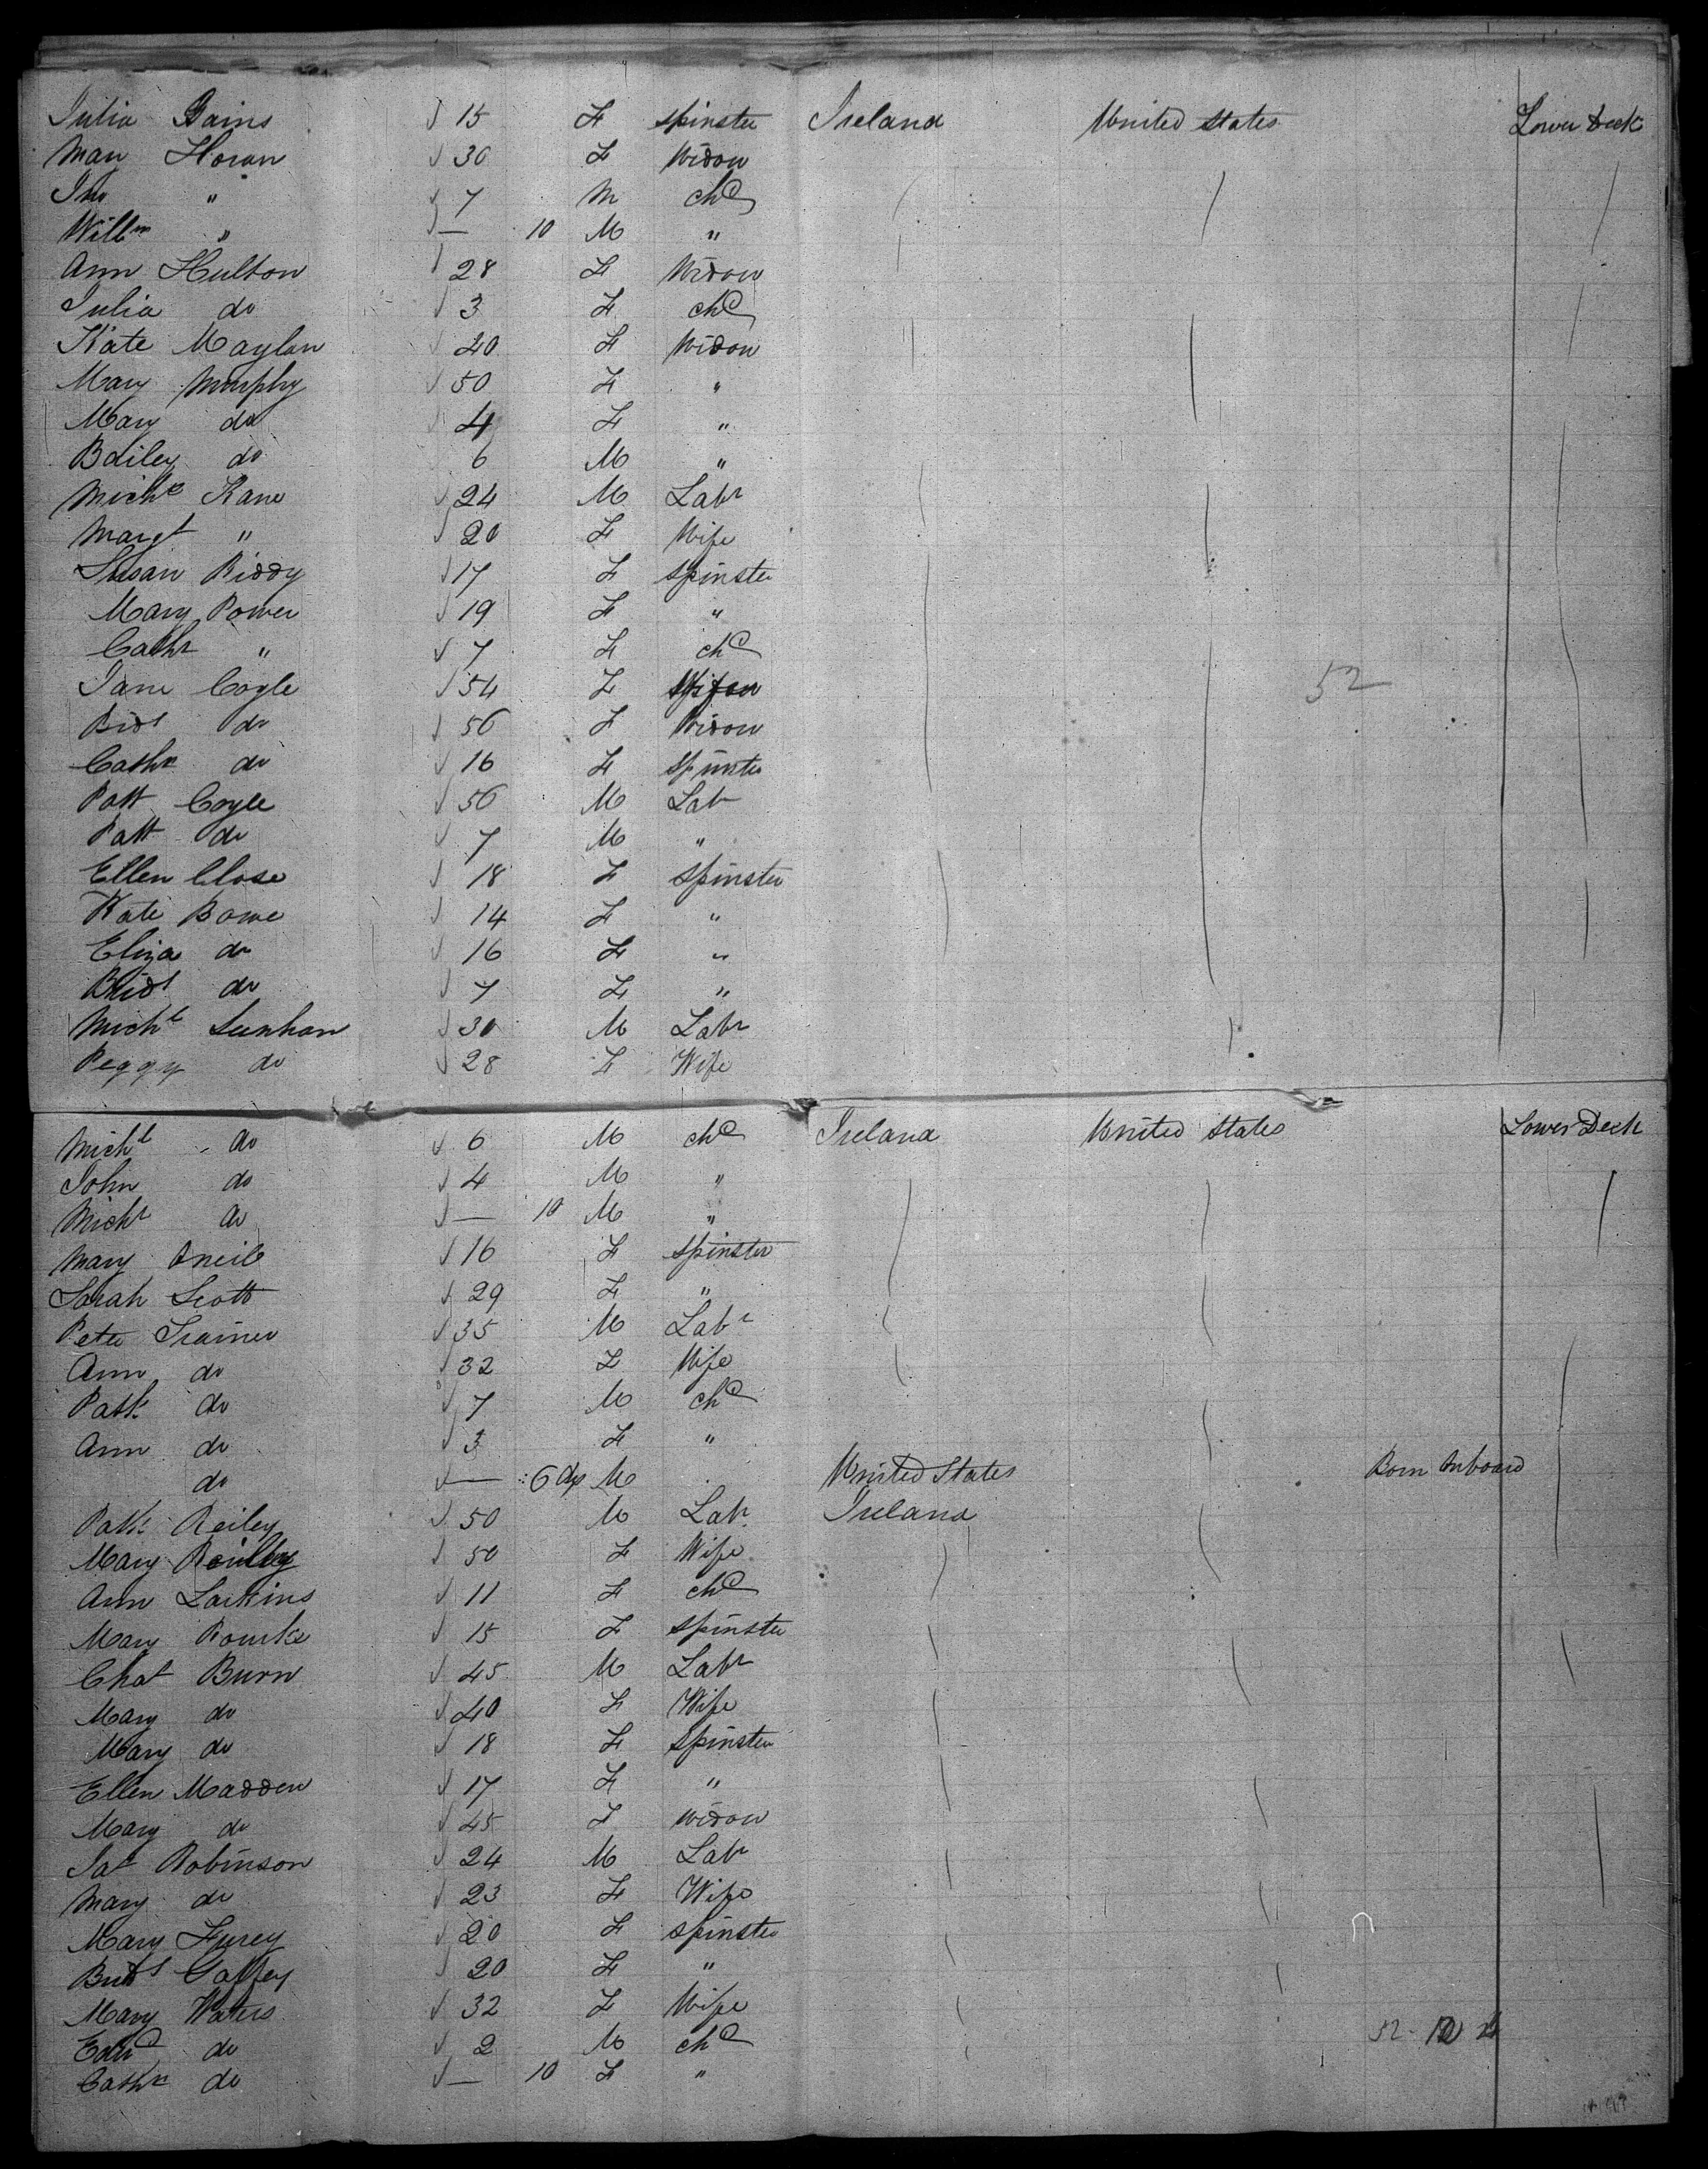 Julia Gains 15 F Spinster Ireland United States Lower Deck
Mary Horan 30 F Widow
Jno " 7 M chd
Willm " — 10 M "
Ann Hulton 28 F Widow
Julia do 3 F chd
Kate Maylan 40 F Widow
Mary Murphy 50 F "
Mary do 4 F "
Bailey do 6 M "
Michl Kane 24 M Labr
Margt " 20 F Wife
Susan Riddy 17 F Spinster
Mary Power 19 F "
Cathr " 7 F chd
Jane Coyle 54 F 52
Bidt do 56 F Widow
Cathr do 16 F Spinster
Patt Coyle 56 M Lab
Patt do 7 M "
Ellen Close 18 F Spinster
Kate Bowe 14 F "
Eliza do 16 F "
Bridt do 7 F "
Michl Lunhan 30 M Labr
Peggy do 28 F Wife
Michl do 6 M chd Ireland United States Lower Deck
John do 4 M "
Michl do — 10 M "
Mary Oneil 16 F Spinster
Sarah Scott 29 F "
Peter Trainer 35 M Labr
Ann do 32 F Wife
Patk do 7 M chd
Ann do 3 F "
do — 6 dys M United States Born Onboard
Patk Reiley 50 M Labr Ireland
Mary Reilly 50 F Wife
Ann Larkins 11 F chd
Mary Rourke 15 F Spinster
Chas Burn 45 M Labr
Mary do 40 F Wife
Mary do 18 F Spinster
Ellen Madden 17 F "
Mary do 45 F Widow
Jas Robinson 24 M Labr
Mary do 23 F Wife
Mary Furey 20 F Spinster
Bridt Gaffey 20 F "
Mary Waters 32 F Wife
Edwd do 2 M chd 52
Cathr do — 10 F "